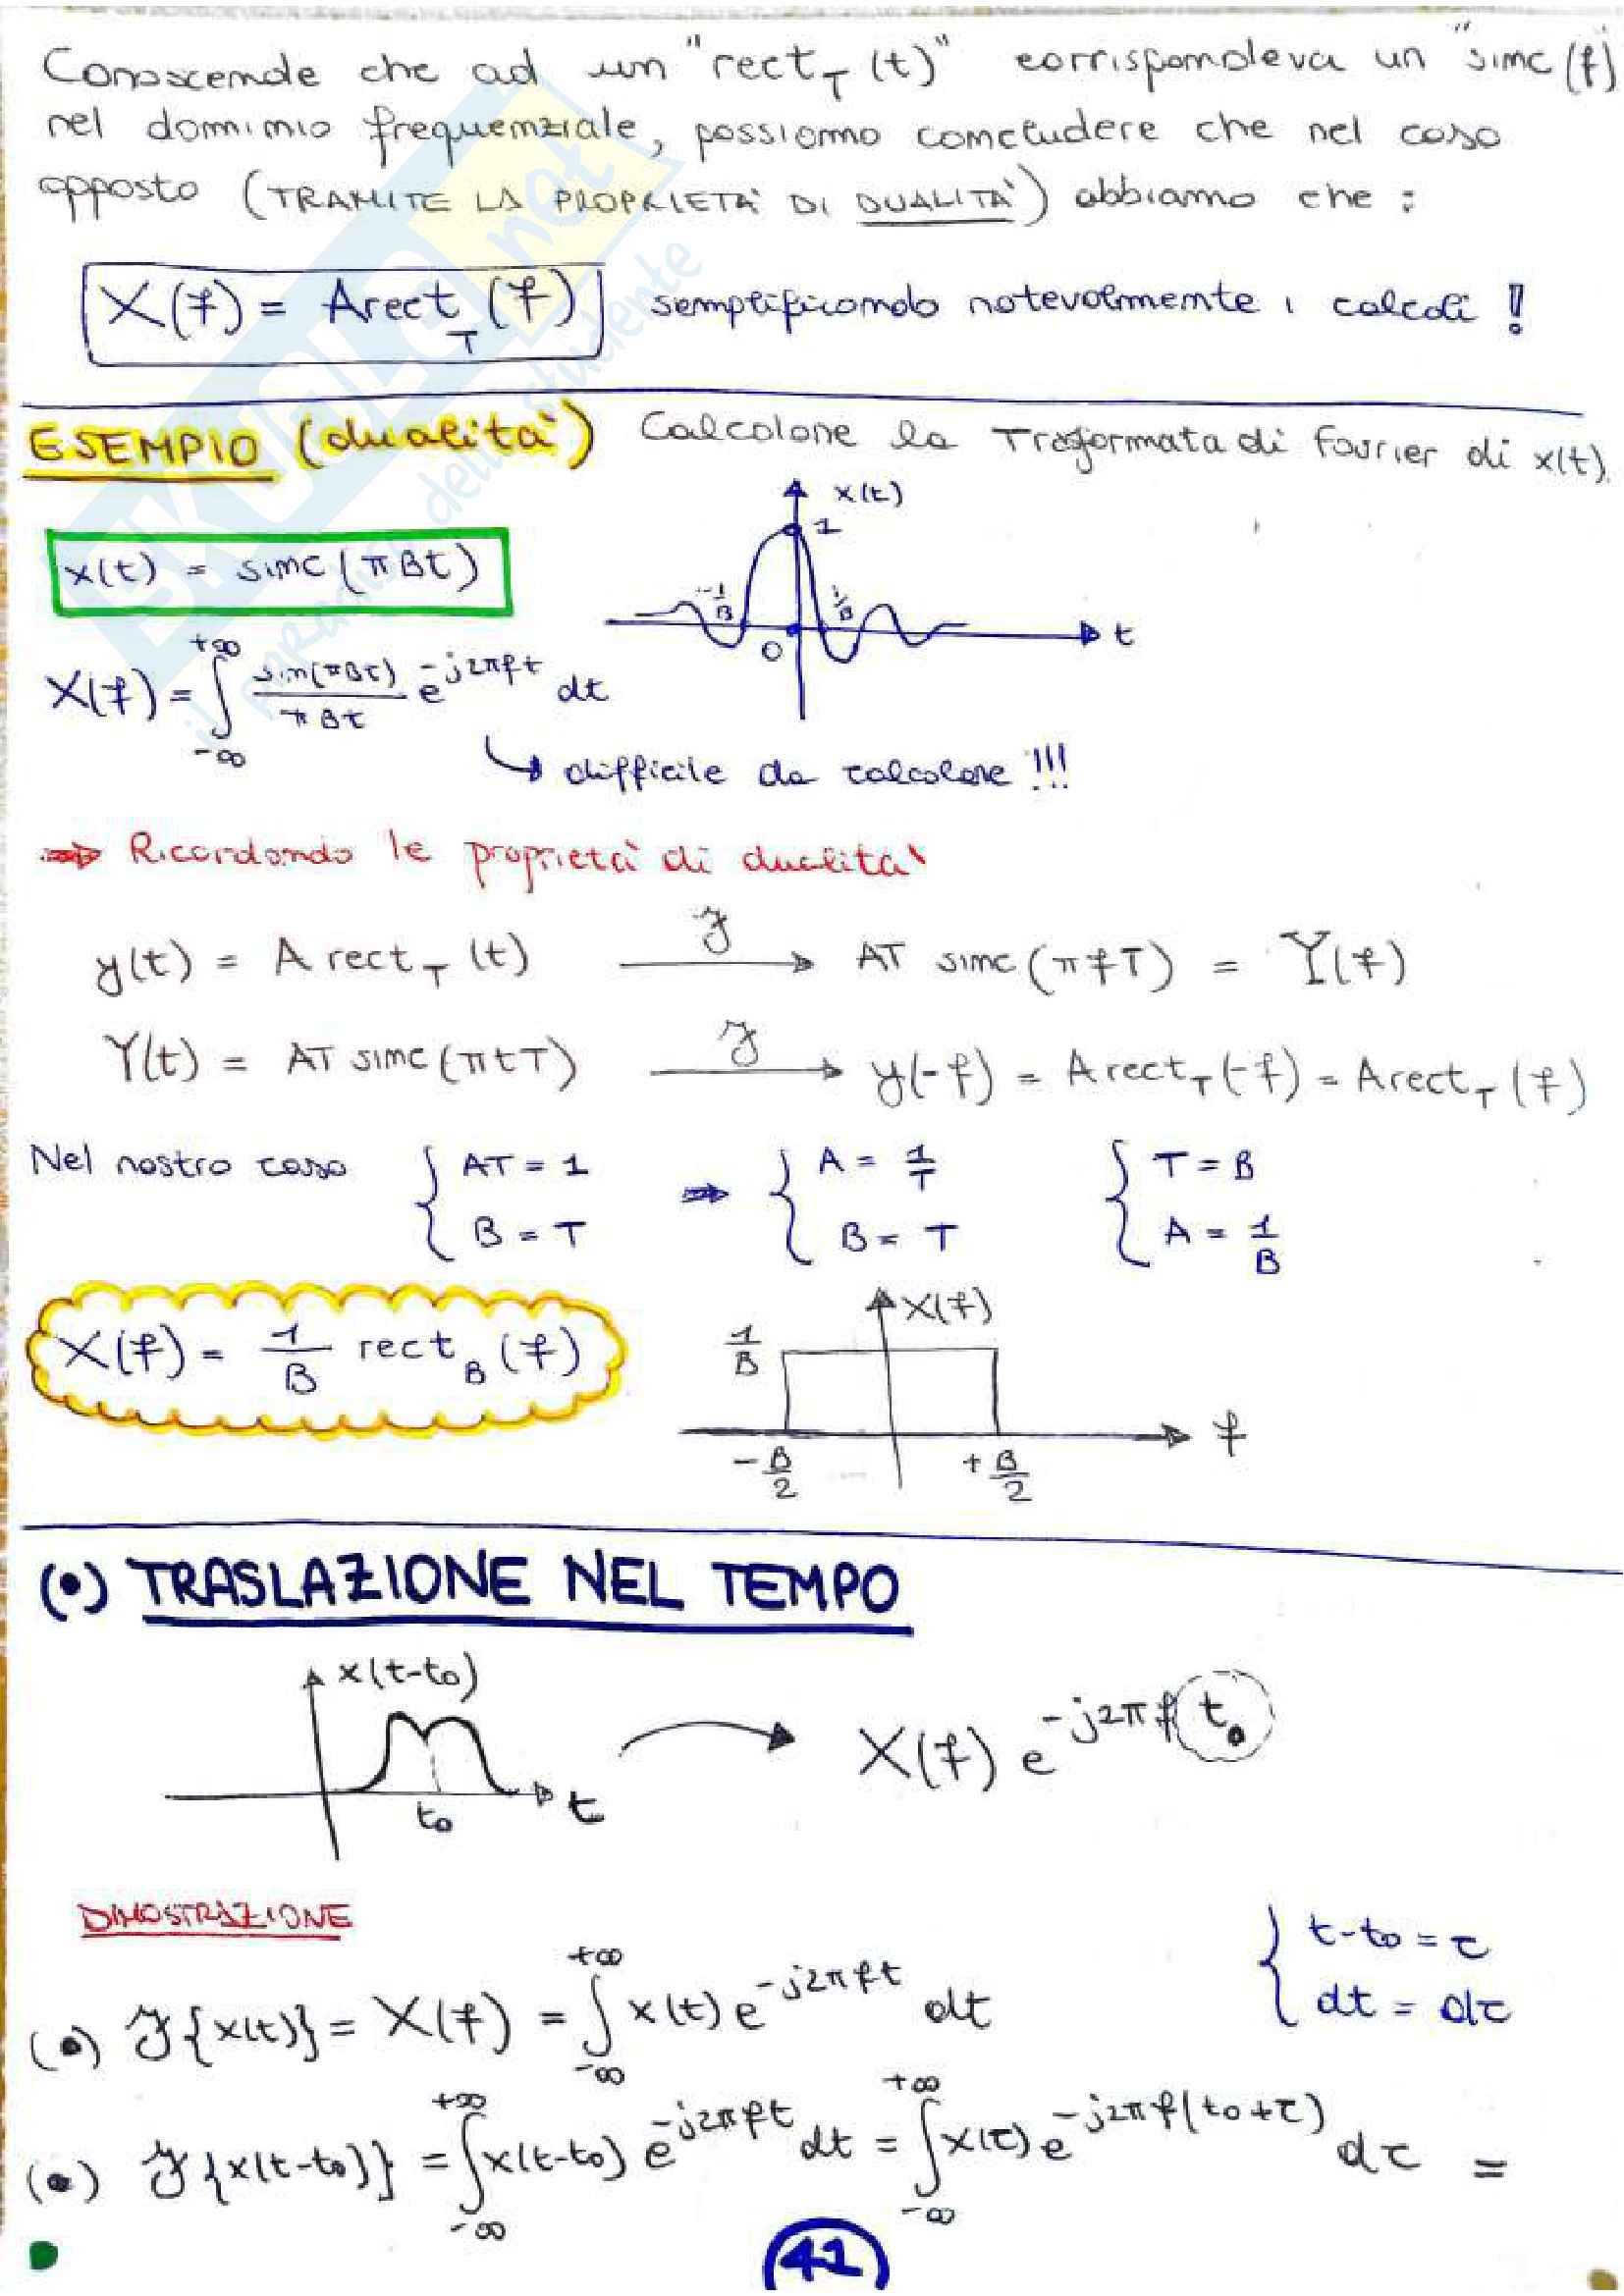 Conoscendo che ad un "rect_T (t)" corrispondeva un "sinc (f)"
nel dominio frequenziale, possiamo concludere che nel caso
opposto (TRAMITE LA PROPRIETA' DI DUALITA') abbiamo che :
X(f) = A rect_T (f) semplificando notevolmente i calcoli !
ESEMPIO (dualita') Calcolare la Trasformata di Fourier di x(t).
x(t)
1
x(t) = sinc (π B t)
-1/B 1/B
0 t
X(f) = ∫_{-∞}^{+∞} sin(πBt)/πBt e^{-j2πft} dt
↳ difficile da calcolare !!!
⇒ Ricordando le proprietà di dualita'
y(t) = A rect_T (t) ℱ→ AT sinc (π f T) = Y(f)
Y(t) = AT sinc (π t T) ℱ→ y(-f) = A rect_T (-f) = A rect_T (f)
Nel nostro caso { AT = 1 ⇒ { A = 1/T { T = B
B = T B = T A = 1/B
X(f) = 1/B rect_B (f)
X(f)
1/B
f
-B/2 +B/2
(•) TRASLAZIONE NEL TEMPO
x(t-t₀)
X(f) e^{-j2πf t₀}
t₀ t
DIMOSTRAZIONE
{ t-t₀ = τ
dt = dτ
(•) ℱ{x(t)} = X(f) = ∫_{-∞}^{+∞} x(t) e^{-j2πft} dt
(•) ℱ{x(t-t₀)} = ∫_{-∞}^{+∞} x(t-t₀) e^{-j2πft} dt = ∫_{-∞}^{+∞} x(τ) e^{-j2πf(t₀+τ)} dτ =
41